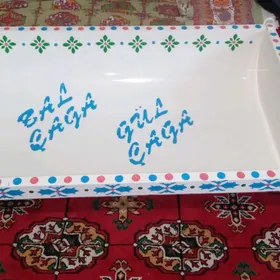 BAL
QAGA
GÜL
QAGA